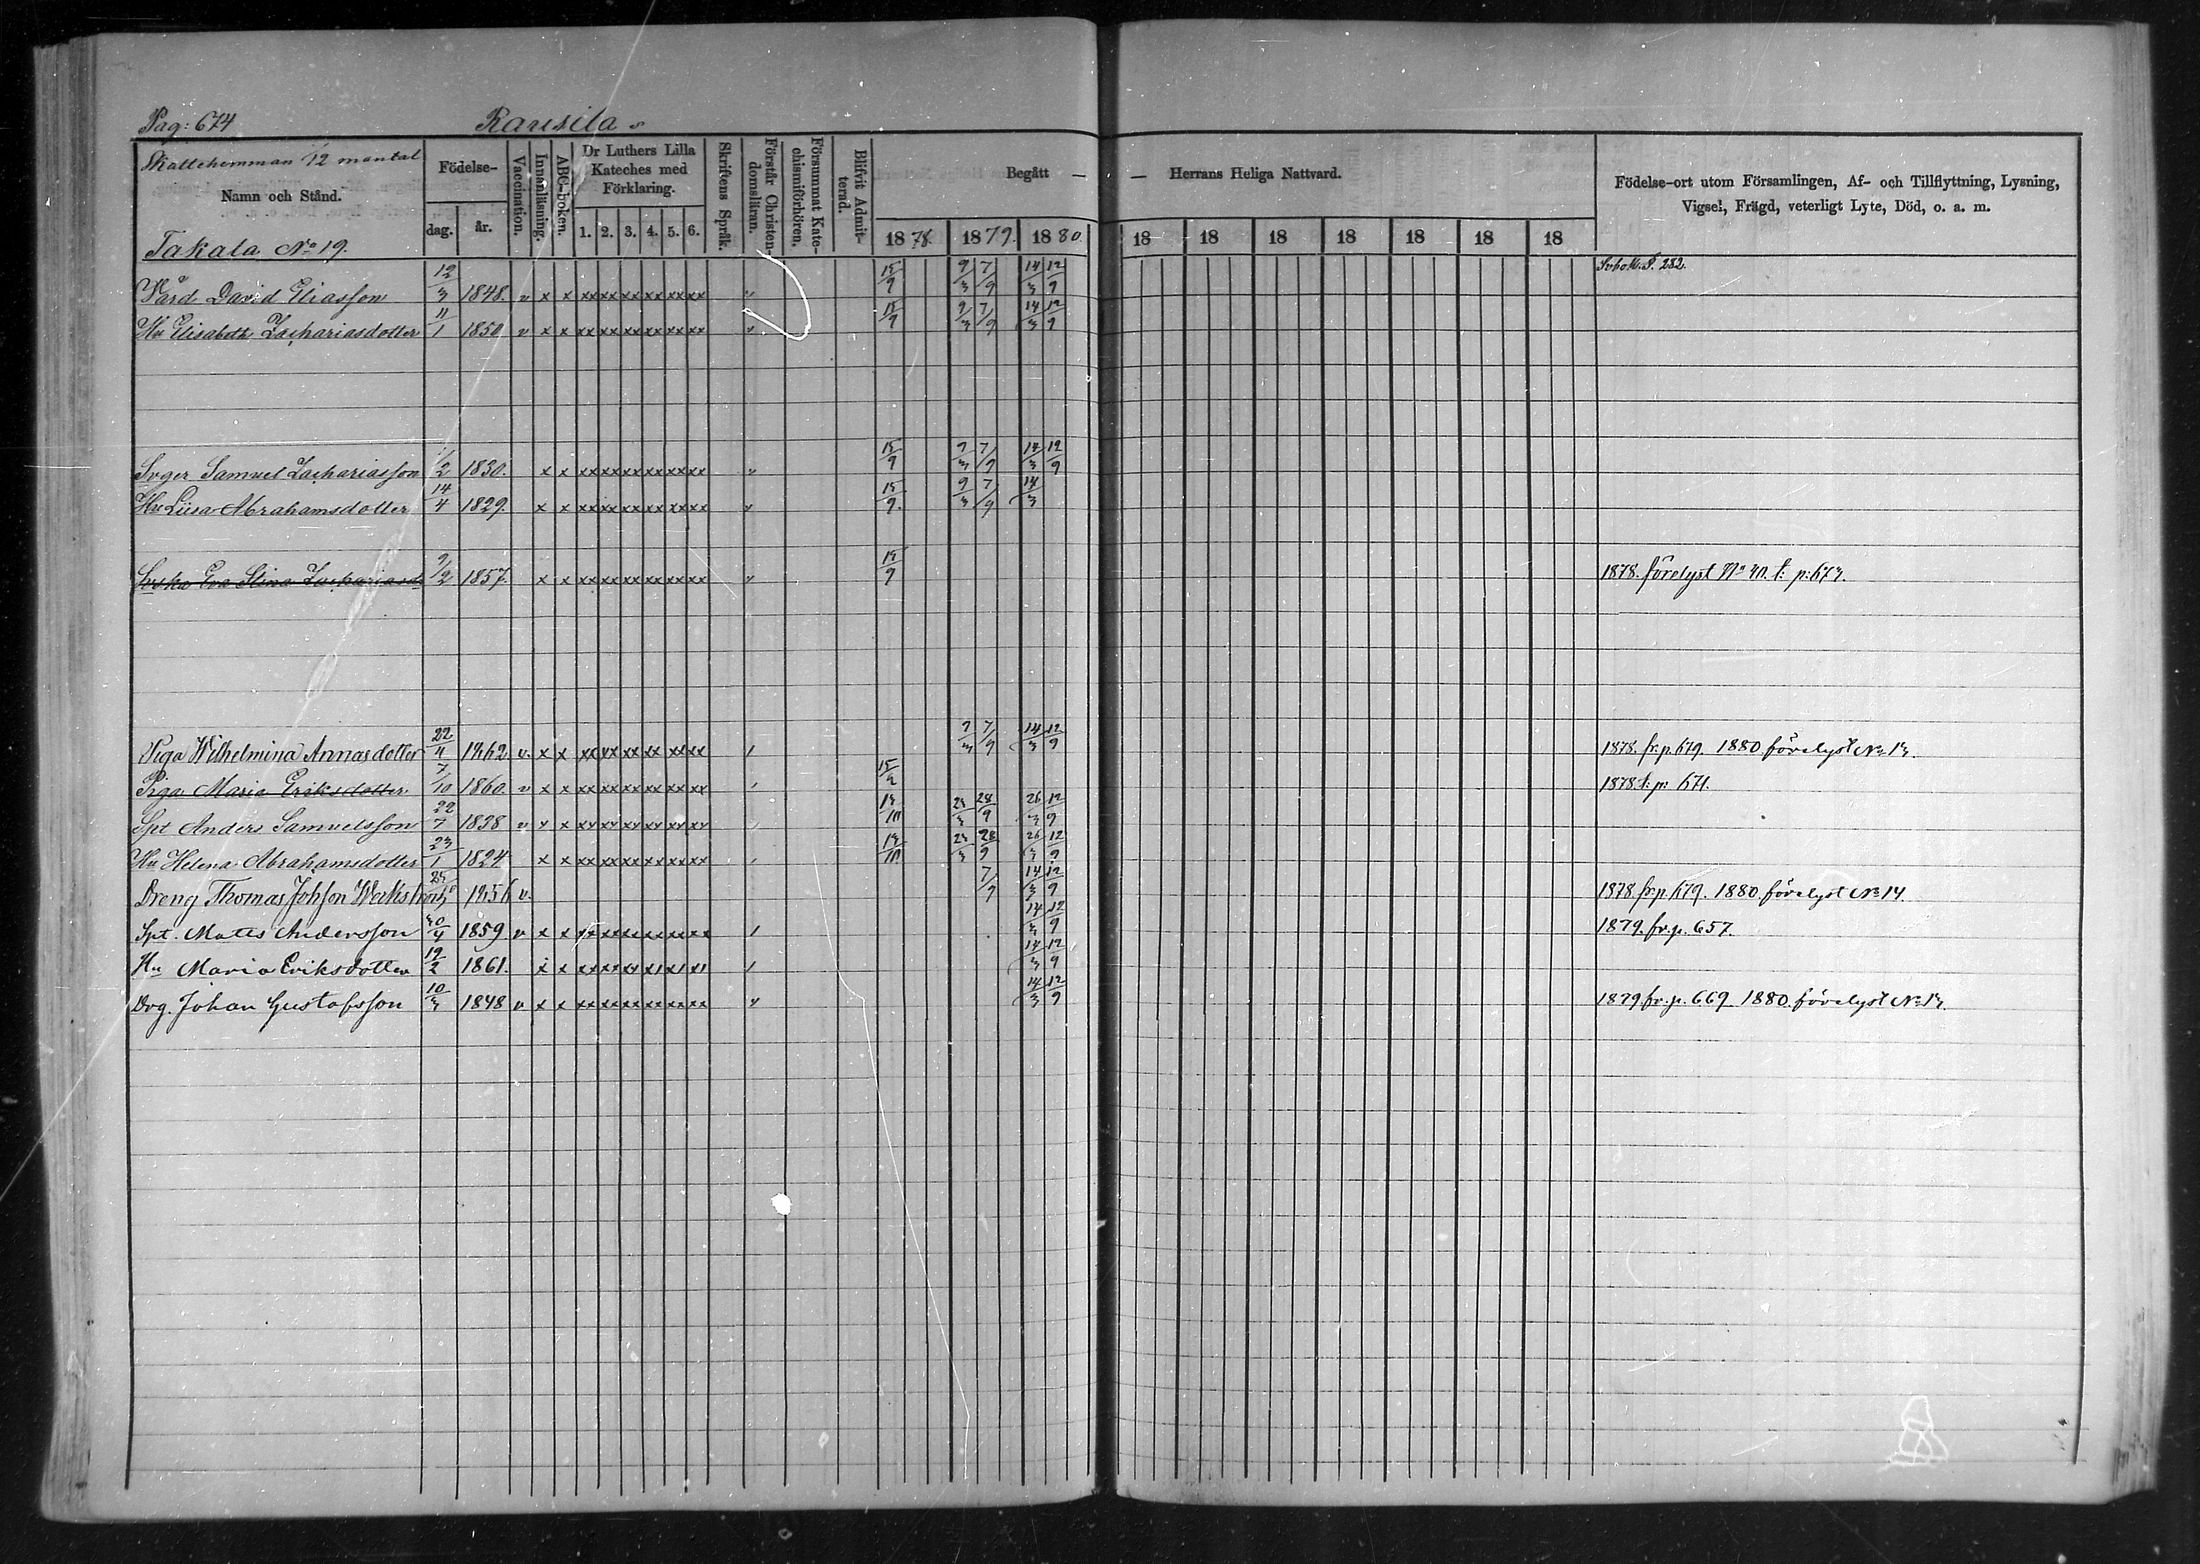 Pag: 674 Rausila
Skattehemman 1/2 mantal
Namn och Stånd.
Takala No 19.
Födelse-
dag. år.
Vaccination.
Innanläsning.
ABC-boken.
Dr Luthers Lilla
Kateches med
Förklaring.
1. 2. 3. 4. 5. 6.
Skriftens Språk.
Förstår Christen-
domsläran.
Försummat Kate-
chismiförhören.
Blifvit Admit-
terad.
Begått — — Herrans Heliga Nattvard.
1878. 1879. 1880. 18 18 18 18 18 18 18
Födelse-ort utom Församlingen, Af- och Tillflyttning, Lysning,
Vigsel, Frägd, veterligt Lyte, Död, o. a. m.
Vård David Eliasson 12/3 1848. v x x xx xx xx xx xx xx " 15/9 9/3 7/9 14/3 12/9 282.
Hu Elisabeth Zachariasdotter 11/1 1850 v x x xx xx xx xx xx xx " 15/9 9/3 7/9 14/3 12/9
Svger Samuel Zachariasson 1830. x x xx xx xx xx xx xx " 15/9 9/3 7/9 14/3 12/9
Hu Liisa Abrahamsdotter 14/4 1829. x x xx xx xx xx xx xx " 15/9. 9/3 7/9 14/3
Eva Stina Zachariasd 9/2 1857. x x xx xx xx xx xx xx " 15/9 1878. förelyst No 40. t: p: 673.
Piga Wilhelmina Annasdotter 22/4 1862. v. x x xx xx xx xx xx xx ' 9/3 7/9 14/3 12/9 1878. fr. p. 679. 1880 förelyst No 13.
Piga Maria Eriksdotter 7/10 1860. v x x xx xx xx xx xx xx ' 1878 t: p: 671.
Spt Anders Samuelsson 22/7 1838 v x x xx xx xx xx xx xx ' 13/10 23/3 28/9 26/3 12/9
Hu Helena Abrahamsdotter 23/1 1824 x x xx xx xx xx xx xx ' 13/10 23/3 28/9 26/3 12/9
Dreng Thomas Johsson 1856 v. 7/9 14/3 12/9 1878. fr. p. 679. 1880. förelyst No 14.
Spt. Matts Andersson 30/4 1859 v x x xx xx xx xx xx xx ' 14/3 12/9 1879. fr. p. 657.
Hu Maria Eriksdotter 19/2 1861. x x xx xx xx xx xx xx ' 14/3 12/9
Drg. Johan Gustafsson 10/3 1848 v x x xx xx xx xx xx xx " 14/3 12/9 1879. fr. p. 669. 1880. förelyst No 13.